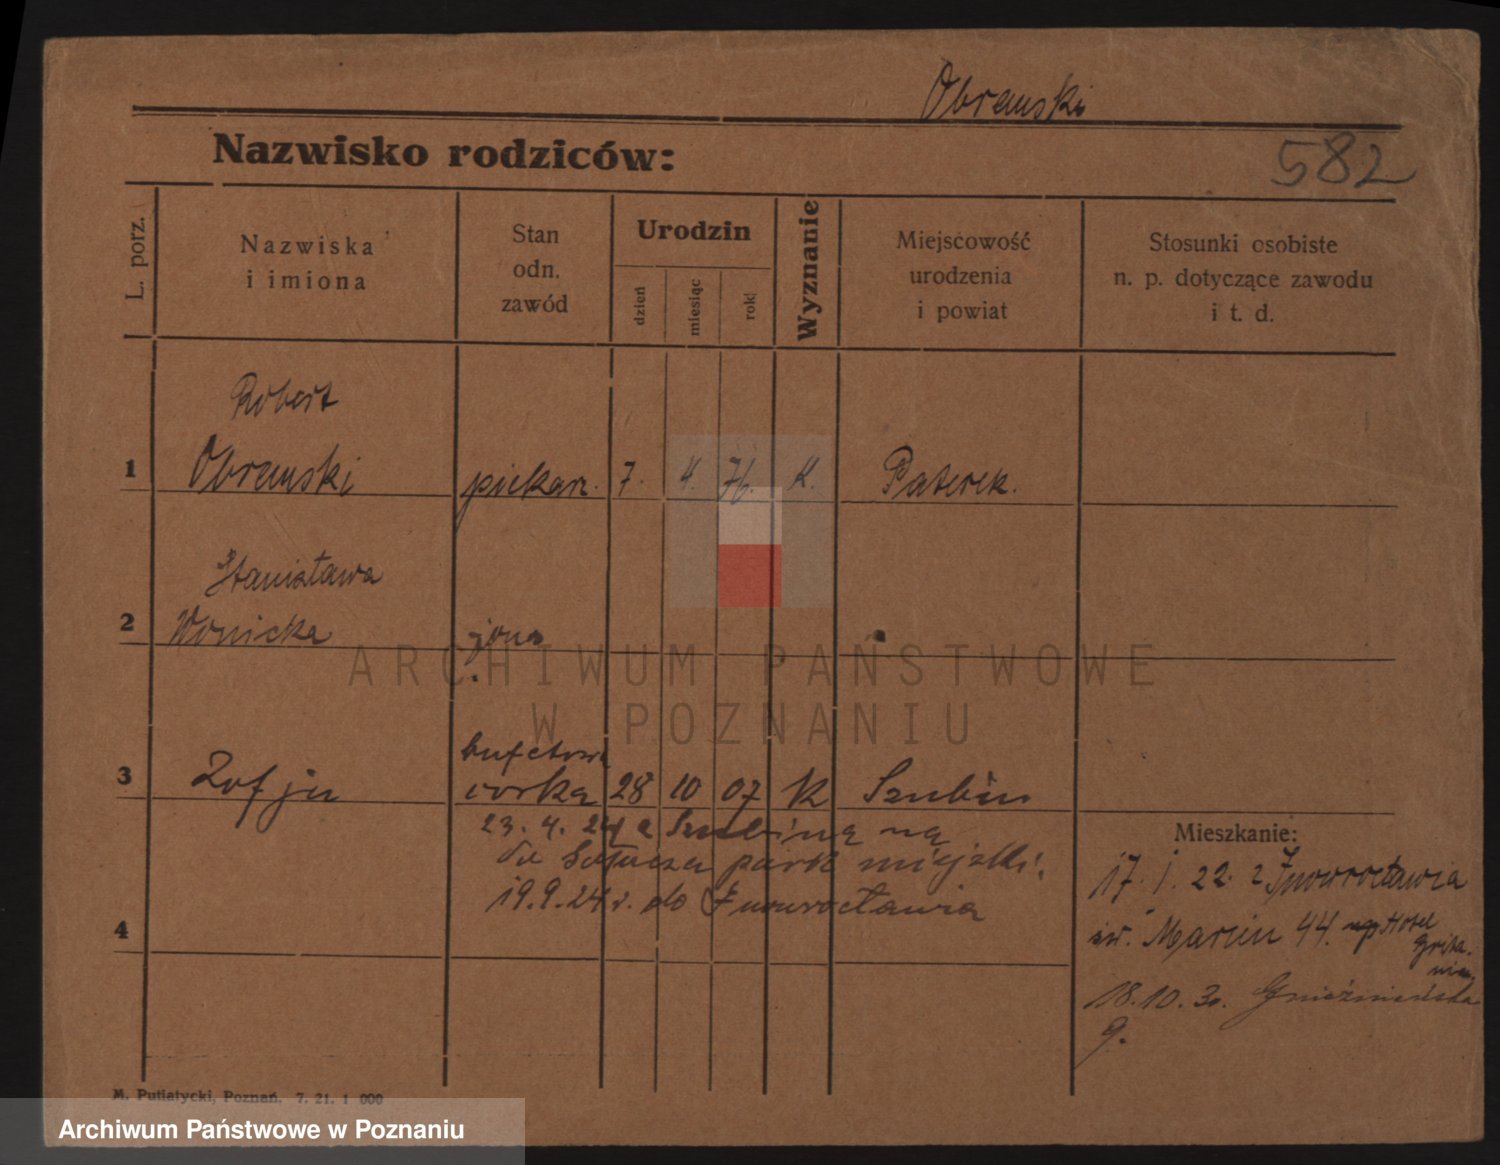 Obremski
Nazwisko rodziców:
582
L. porz.
Nazwiska
i imiona
Stan
odn.
zawód
Urodzin
dzień
miesiąc
rok
Wyznanie
Miejscowość
urodzenia
i powiat
Stosunki osobiste
n. p. dotyczące zawodu
i t. d.
Robert
1 Obremski piekarz. 7. 4. 76. K. Paterek.
Stanisława
2 Wonicka żona
ARCHIWUM PAŃSTWOWE
W POZNANIU
bufetowa
3 Zofja córka 28 10 07 K Szubin
23. 4. 24 z Szubina na
park miejski.
19.9.24 r. do Inowrocławia
4
Mieszkanie:
17. 1. 22. z Inowrocławia
św. Marcin 44. Hotel
18.10.30. Gnieźnieńska
9.
M. Putiatycki, Poznań. 7. 21. 1 000
Archiwum Państwowe w Poznaniu